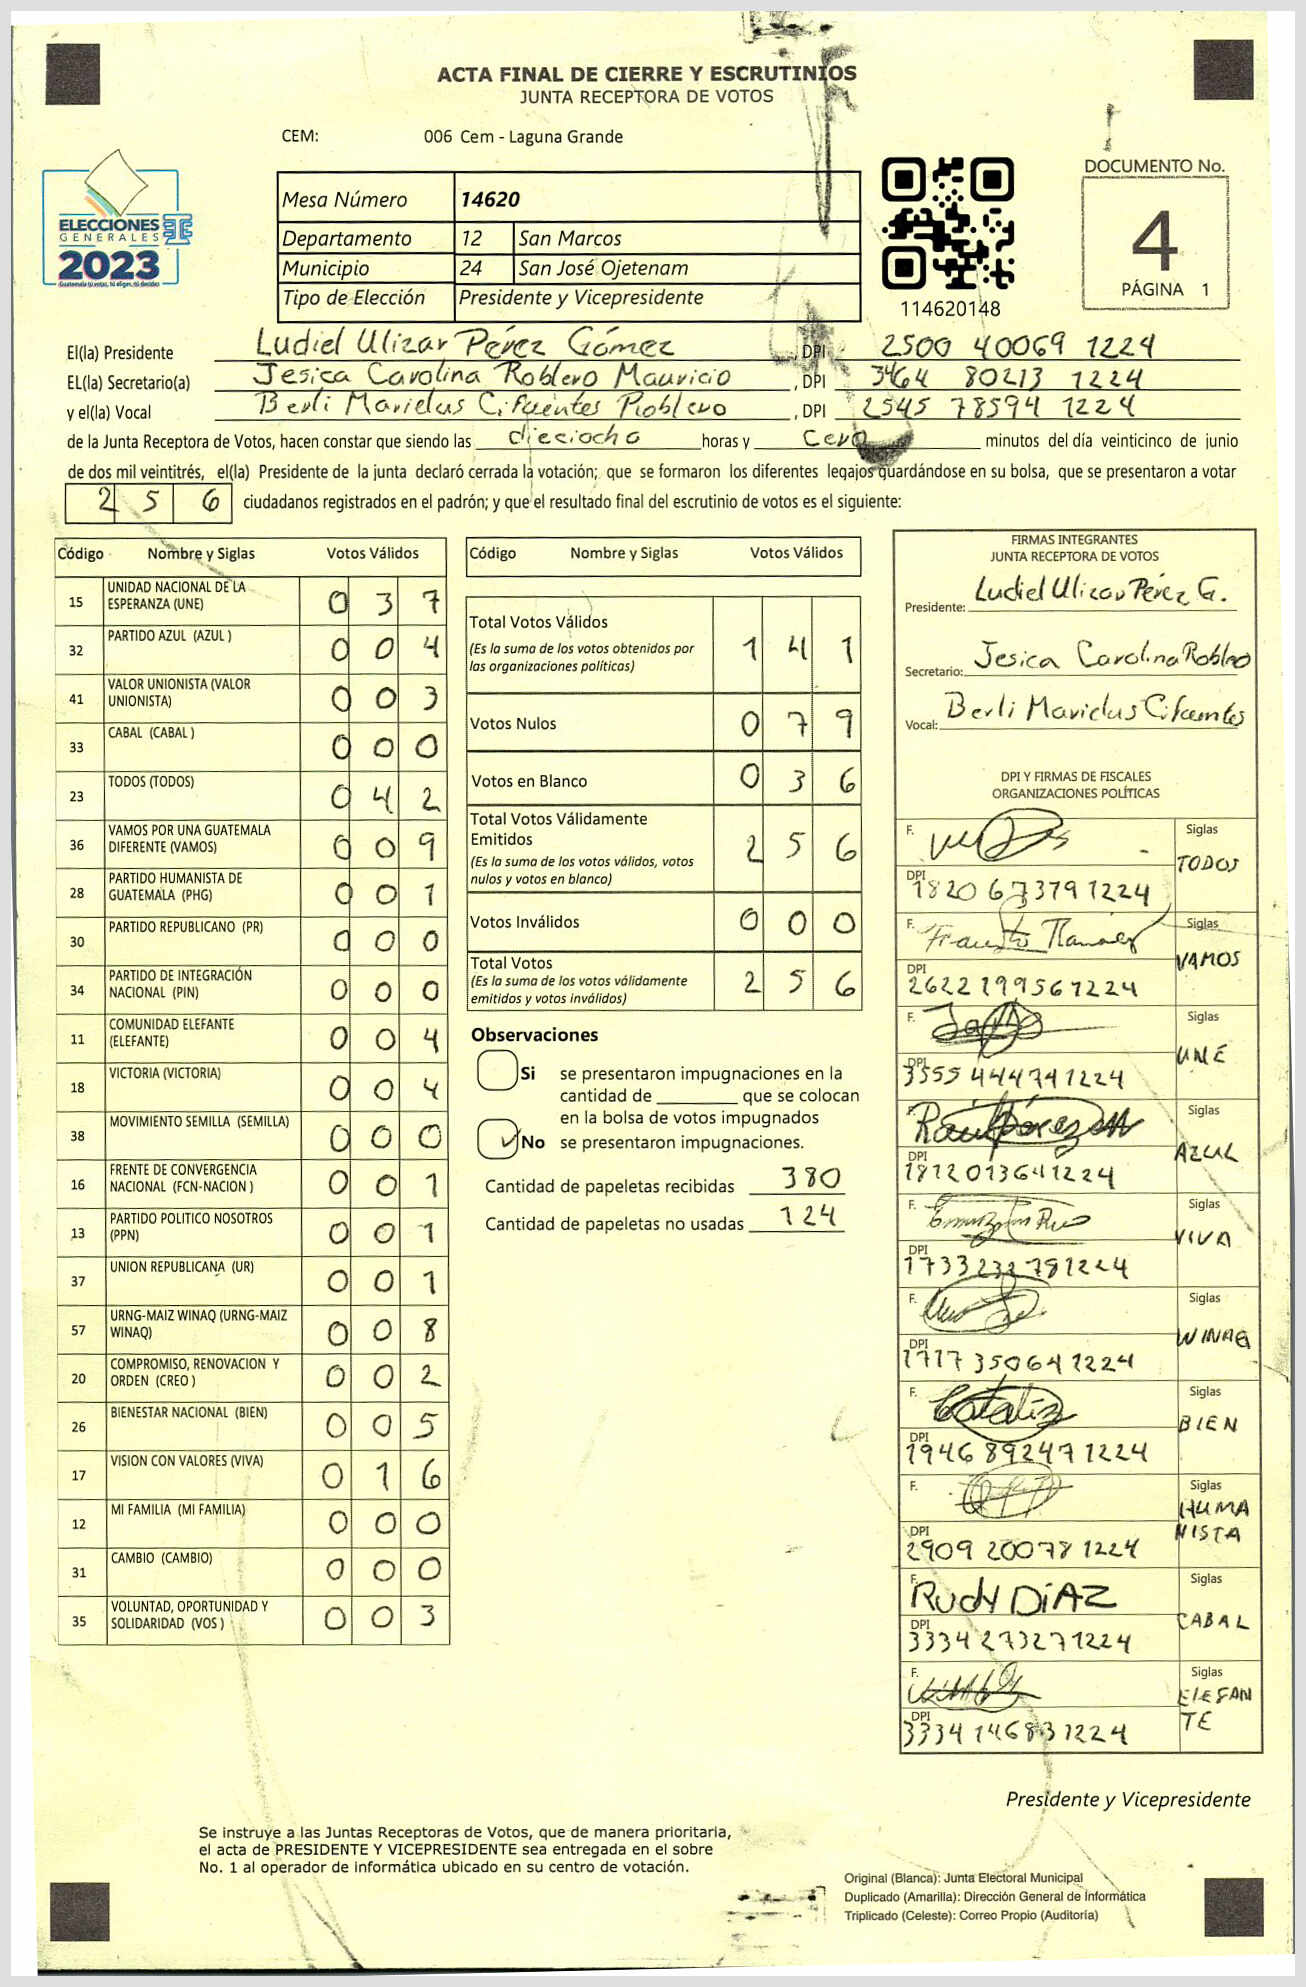 ACTA FINAL DE CIERRE Y ESCRUTINIOS
JUNTA RECEPTORA DE VOTOS
CEM: 006 Cem - Laguna Grande
ELECCIONES
GENERALES
2023
Guatemala tú votas, tú eliges, tú decides
Mesa Número 14620
Departamento 12 San Marcos
Municipio 24 San José Ojetenam
Tipo de Elección Presidente y Vicepresidente
114620148
DOCUMENTO No.
4
PÁGINA 1
El(la) Presidente Ludiel Ulizar Pérez Gómez, DPI 2500 40069 1224
EL(la) Secretario(a) Jesica Carolina Roblero Mauricio, DPI 3464 80213 1224
y el(la) Vocal Berli Maridus Cifuentes Roblero, DPI 2545 78594 1224
de la Junta Receptora de Votos, hacen constar que siendo las dieciocho horas y cero minutos del día veinticinco de junio
de dos mil veintitrés, el(la) Presidente de la junta declaró cerrada la votación; que se formaron los diferentes legajos guardándose en su bolsa, que se presentaron a votar
256 ciudadanos registrados en el padrón; y que el resultado final del escrutinio de votos es el siguiente:
Código Nombre y Siglas Votos Válidos
15 UNIDAD NACIONAL DE LA ESPERANZA (UNE) 037
32 PARTIDO AZUL (AZUL ) 004
41 VALOR UNIONISTA (VALOR UNIONISTA) 003
33 CABAL (CABAL ) 000
23 TODOS (TODOS) 042
36 VAMOS POR UNA GUATEMALA DIFERENTE (VAMOS) 009
28 PARTIDO HUMANISTA DE GUATEMALA (PHG) 001
30 PARTIDO REPUBLICANO (PR) 000
34 PARTIDO DE INTEGRACIÓN NACIONAL (PIN) 000
11 COMUNIDAD ELEFANTE (ELEFANTE) 004
18 VICTORIA (VICTORIA) 004
38 MOVIMIENTO SEMILLA (SEMILLA) 000
16 FRENTE DE CONVERGENCIA NACIONAL (FCN-NACION ) 001
13 PARTIDO POLITICO NOSOTROS (PPN) 001
37 UNION REPUBLICANA (UR) 001
57 URNG-MAIZ WINAQ (URNG-MAIZ WINAQ) 008
20 COMPROMISO, RENOVACION Y ORDEN (CREO ) 002
26 BIENESTAR NACIONAL (BIEN) 005
17 VISION CON VALORES (VIVA) 016
12 MI FAMILIA (MI FAMILIA) 000
31 CAMBIO (CAMBIO) 000
35 VOLUNTAD, OPORTUNIDAD Y SOLIDARIDAD (VOS ) 003
Código Nombre y Siglas Votos Válidos
Total Votos Válidos 141
(Es la suma de los votos obtenidos por
las organizaciones políticas)
Votos Nulos 079
Votos en Blanco 036
Total Votos Válidamente
Emitidos 256
(Es la suma de los votos válidos, votos
nulos y votos en blanco)
Votos Inválidos 000
Total Votos 256
(Es la suma de los votos válidamente
emitidos y votos inválidos)
Observaciones
Si se presentaron impugnaciones en la
cantidad de ________ que se colocan
en la bolsa de votos impugnados
✓ No se presentaron impugnaciones.
Cantidad de papeletas recibidas 380
Cantidad de papeletas no usadas 124
FIRMAS INTEGRANTES
JUNTA RECEPTORA DE VOTOS
Presidente: Ludiel Ulizar Pérez G.
Secretario: Jesica Carolina Roblero
Vocal: Berli Maridus Cifuentes
DPI Y FIRMAS DE FISCALES
ORGANIZACIONES POLÍTICAS
F. Siglas TODOS
DPI 1820 67379 1224
F. Siglas VAMOS
DPI 2622 19956 1224
F. Siglas UNE
DPI 3555 44474 1224
F. Siglas AZUL
DPI 1812 01364 1224
F. Siglas VIVA
DPI 1733 23278 1224
F. Siglas WINAQ
DPI 1717 35064 1224
F. Siglas BIEN
DPI 1946 89247 1224
F. Siglas HUMANISTA
DPI 2909 20078 1224
F. RUDY DíAZ Siglas CABAL
DPI 3334 27327 1224
F. Siglas ELEFANTE
DPI 3334 14683 1224
Presidente y Vicepresidente
Se instruye a las Juntas Receptoras de Votos, que de manera prioritaria,
el acta de PRESIDENTE Y VICEPRESIDENTE sea entregada en el sobre
No. 1 al operador de informática ubicado en su centro de votación.
Original (Blanca): Junta Electoral Municipal
Duplicado (Amarilla): Dirección General de Informática
Triplicado (Celeste): Correo Propio (Auditoría)